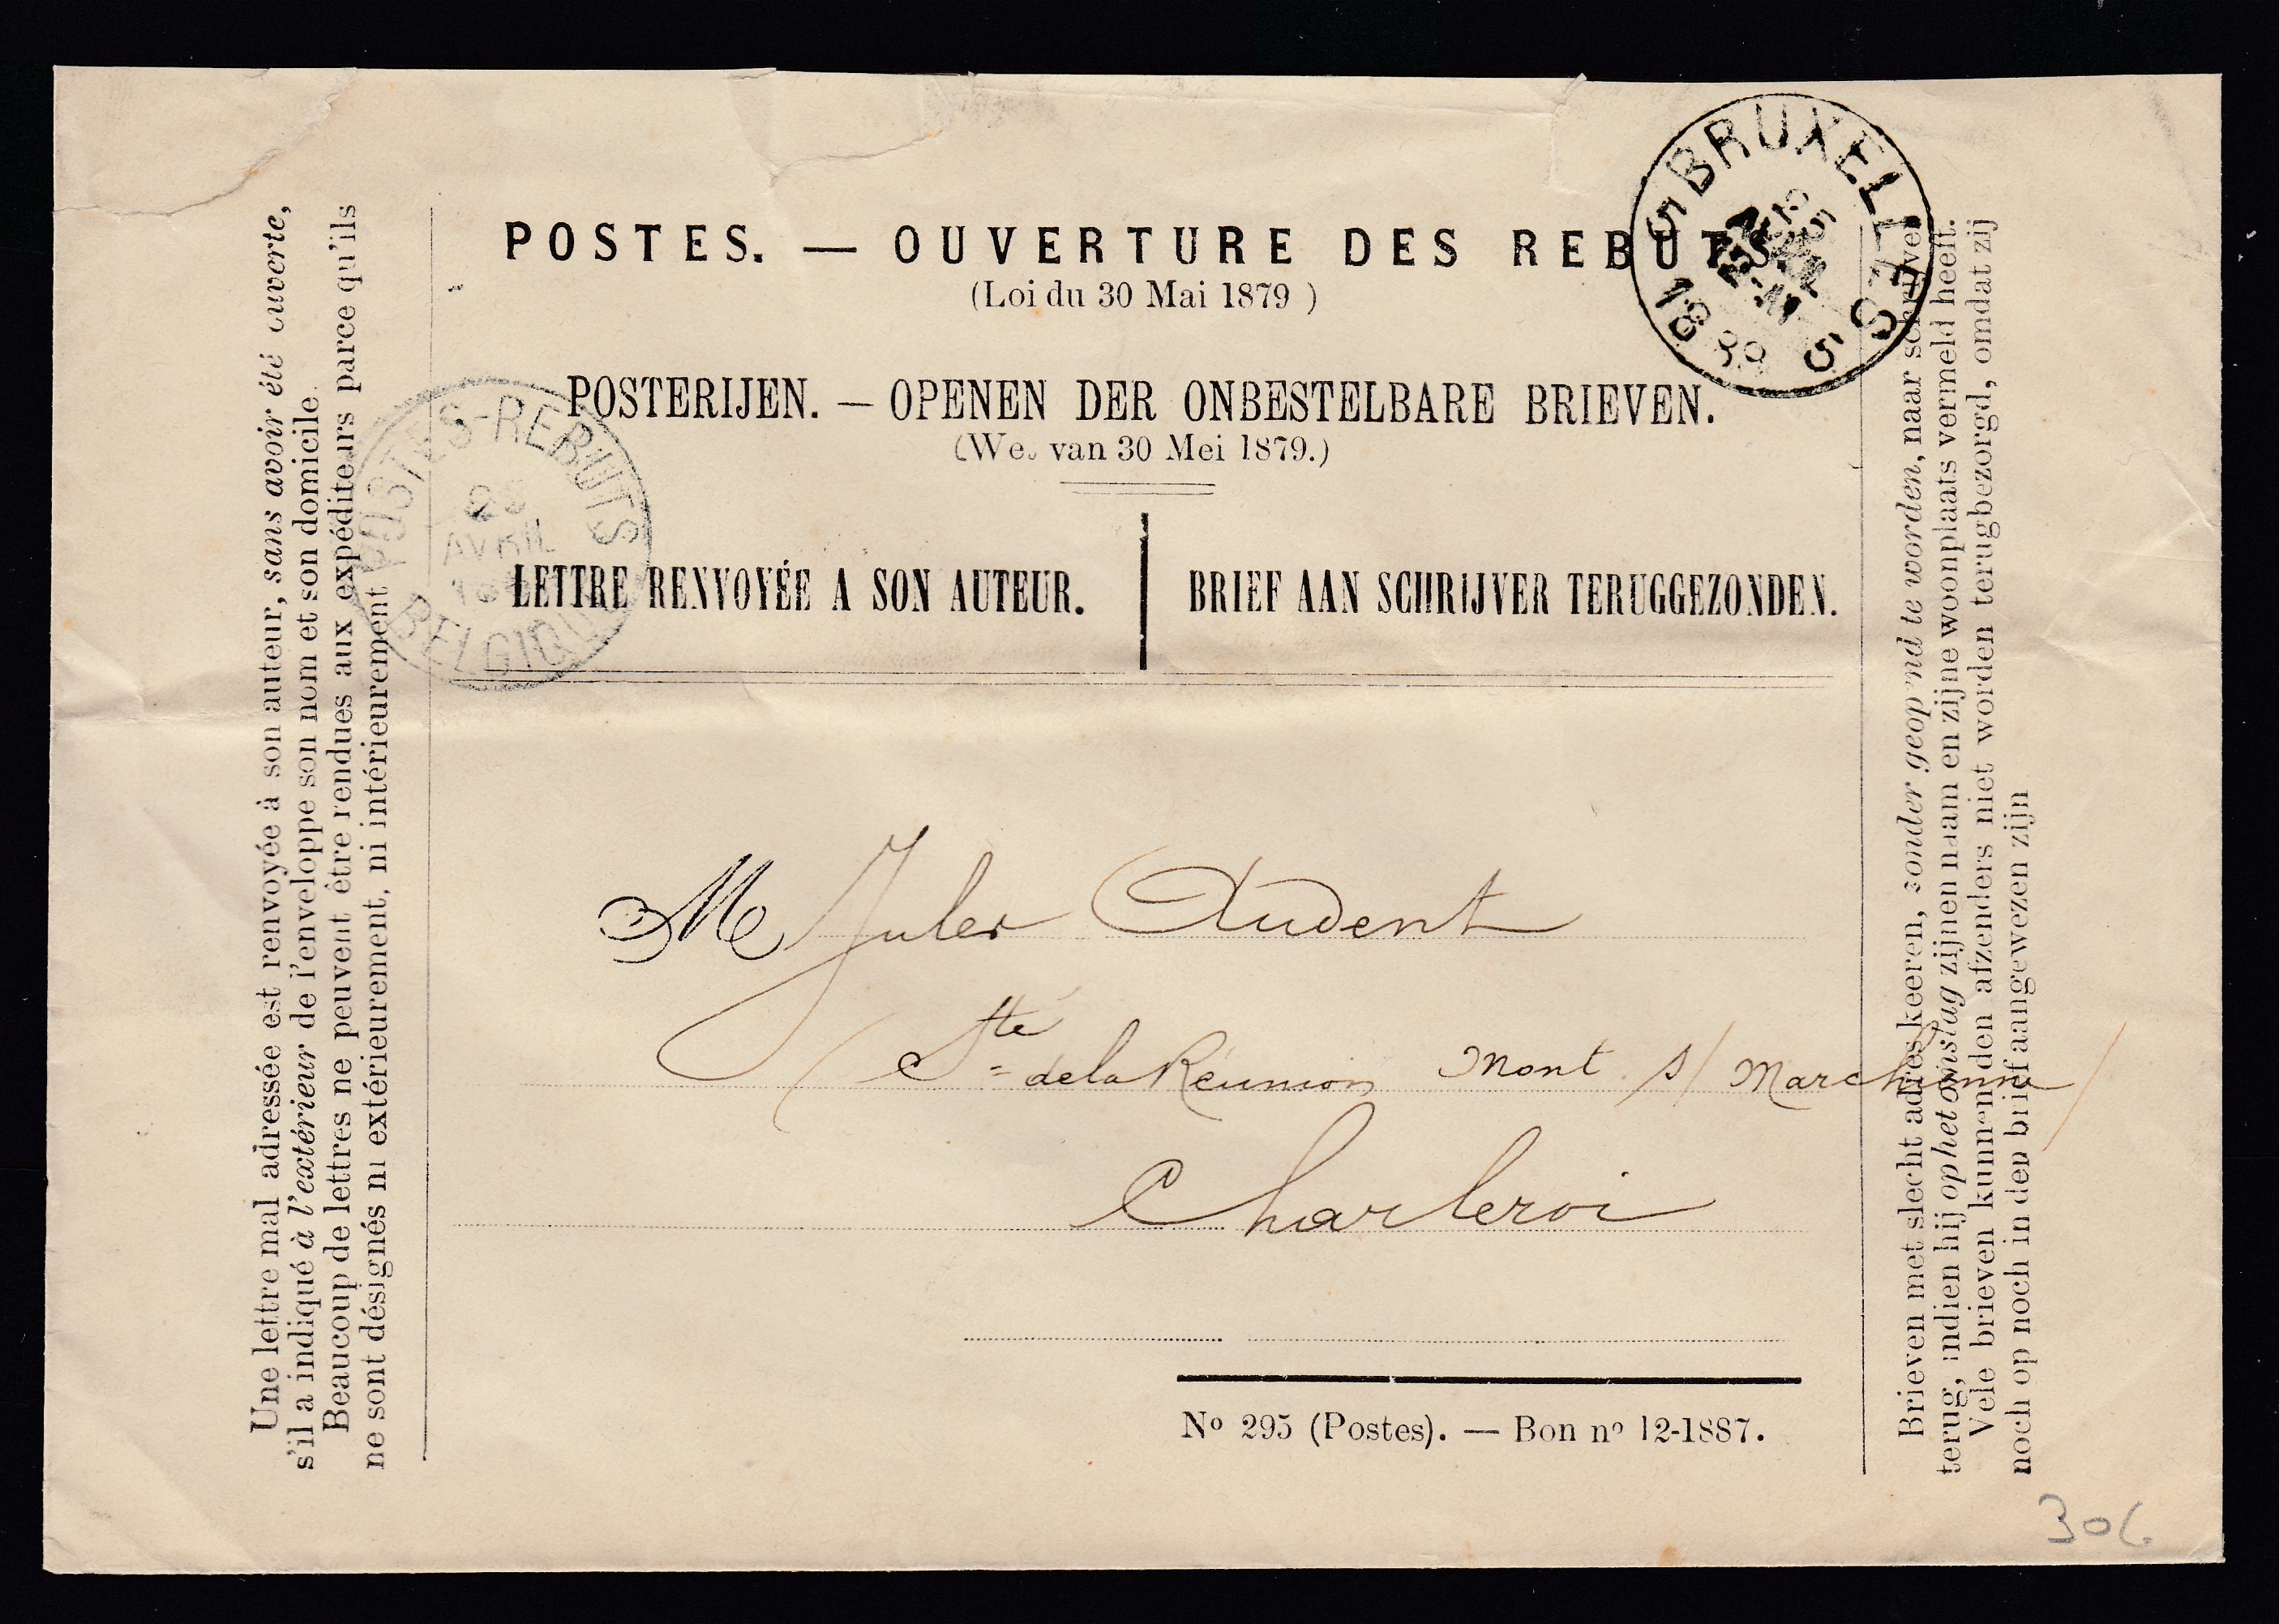 POSTES. — OUVERTURE DES REBUTS.
(Loi du 30 Mai 1879 )
POSTERIJEN. — OPENEN DER ONBESTELBARE BRIEVEN.
(We. van 30 Mei 1879.)
LETTRE RENVOYÉE A SON AUTEUR.
BRIEF AAN SCHRIJVER TERUGGEZONDEN.
M Jules Audent
Sté de la Réunion Mont s/ Marchienne
Charleroi
Nº 295 (Postes). — Bon nº 12-1887.
Une lettre mal adressée est renvoyée à son auteur, sans avoir été ouverte,
s'il a indiqué à l'extérieur de l'enveloppe son nom et son domicile.
Beaucoup de lettres ne peuvent être rendues aux expéditeurs parce qu'ils
ne sont désignés ni extérieurement, ni intérieurement
Brieven met slecht adres keeren, zonder geopend te worden, naar schrijver
terug, indien hij op het omslag zijnen naam en zijne woonplaats vermeld heeft.
Vele brieven kunnen den afzenders niet worden terugbezorgd, omdat zij
noch op noch in den brief aangewezen zijn
BRUXELLES 5
25 AVRIL
POSTES-REBUTS
25
AVRIL
BELGIQUE
306